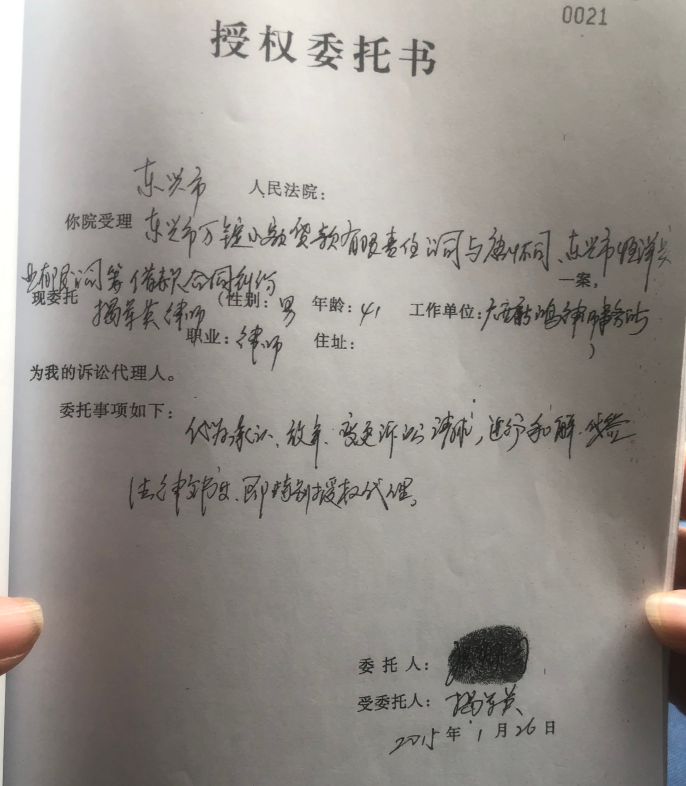 0021
授权委托书
东兴市 人民法院:
你院受理 东兴市万锭小额贷款有限责任公司与 不同、东兴市恒洋
公司等借款合同纠纷 一案,
现委托 揭军英律师 (性别: 男 年龄: 41 工作单位: 广西 鸿律师事务所
职业: 律师 住址: )
为我的诉讼代理人。
委托事项如下: 代为承认、放弃、变更诉讼请求, 进行和解、代签
法律文书, 即特别授权代理。
委 托 人:
受委托人: 揭军英
2015年 1 月 26 日